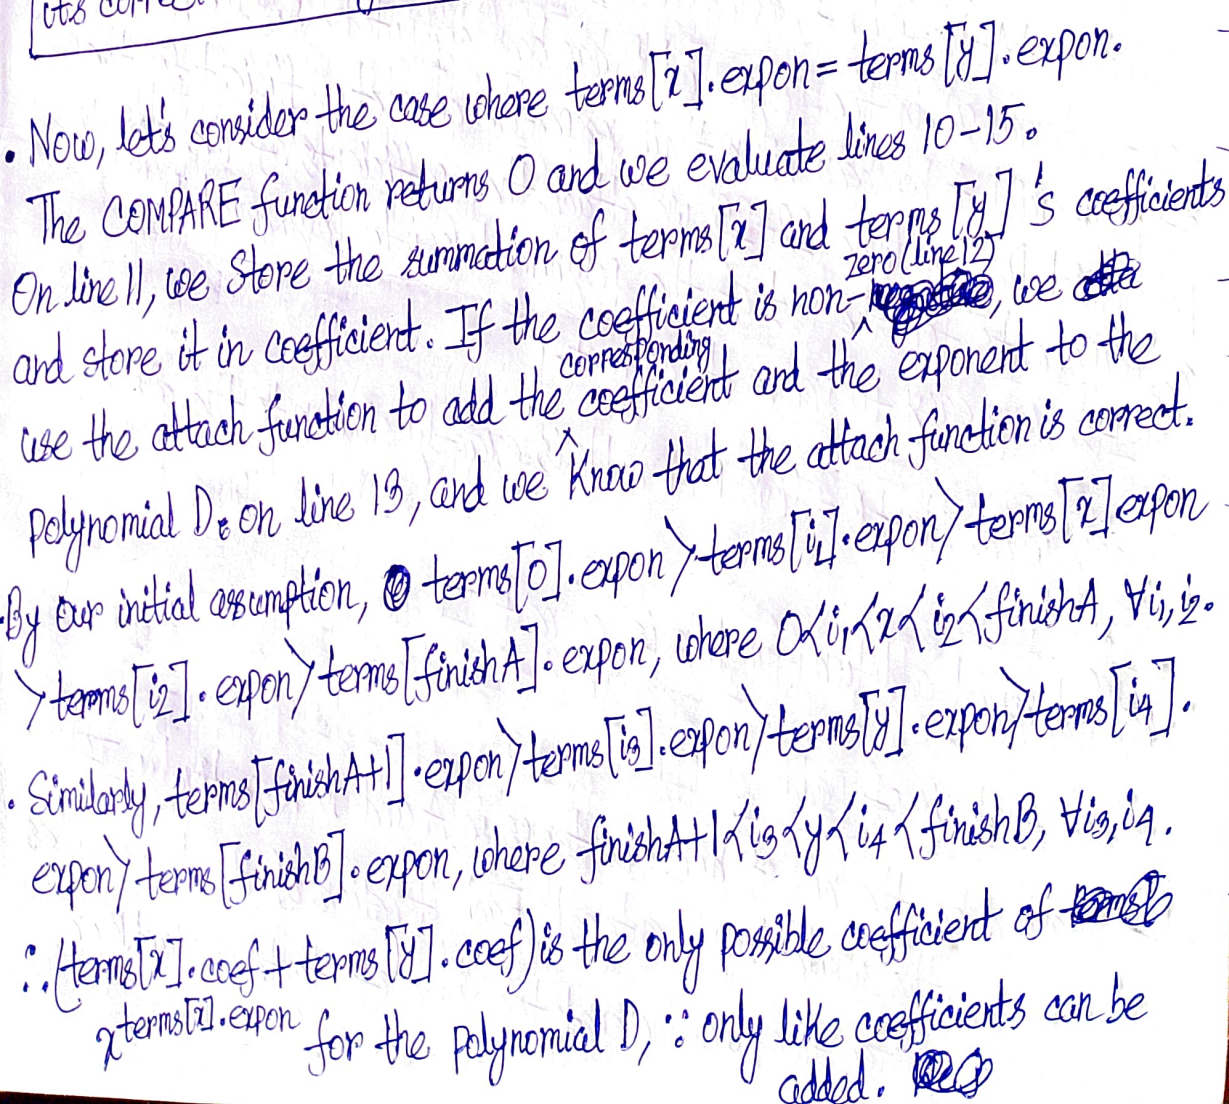 its correct
• Now, let's consider the case where terms[x].expon = terms[y].expon.
The COMPARE function returns 0 and we evaluate lines 10-15.
On line 11, we store the summation of terms[x] and terms[y]'s coefficients
and store it in coefficient. If the coefficient is non-zero (line 12), we
use the attach function to add the corresponding coefficient and the exponent to the
polynomial D. on line 13, and we know that the attach function is correct.
• By our initial assumption, terms[0].expon > terms[i1].expon > terms[x]expon
> terms[i2].expon > terms[finishA].expon, where 0<i1<x<i2<finishA, ∀i1,i2.
• Similarly, terms[finishA+1].expon > terms[i3].expon > terms[y].expon > terms[i4].
expon > terms[finishB].expon, where finishA+1<i3<y<i4<finishB, ∀i3,i4.
∴ (terms[x].coef + terms[y].coef) is the only possible coefficient of
x^terms[x].expon for the polynomial D, ∵ only like coefficients can be
added.